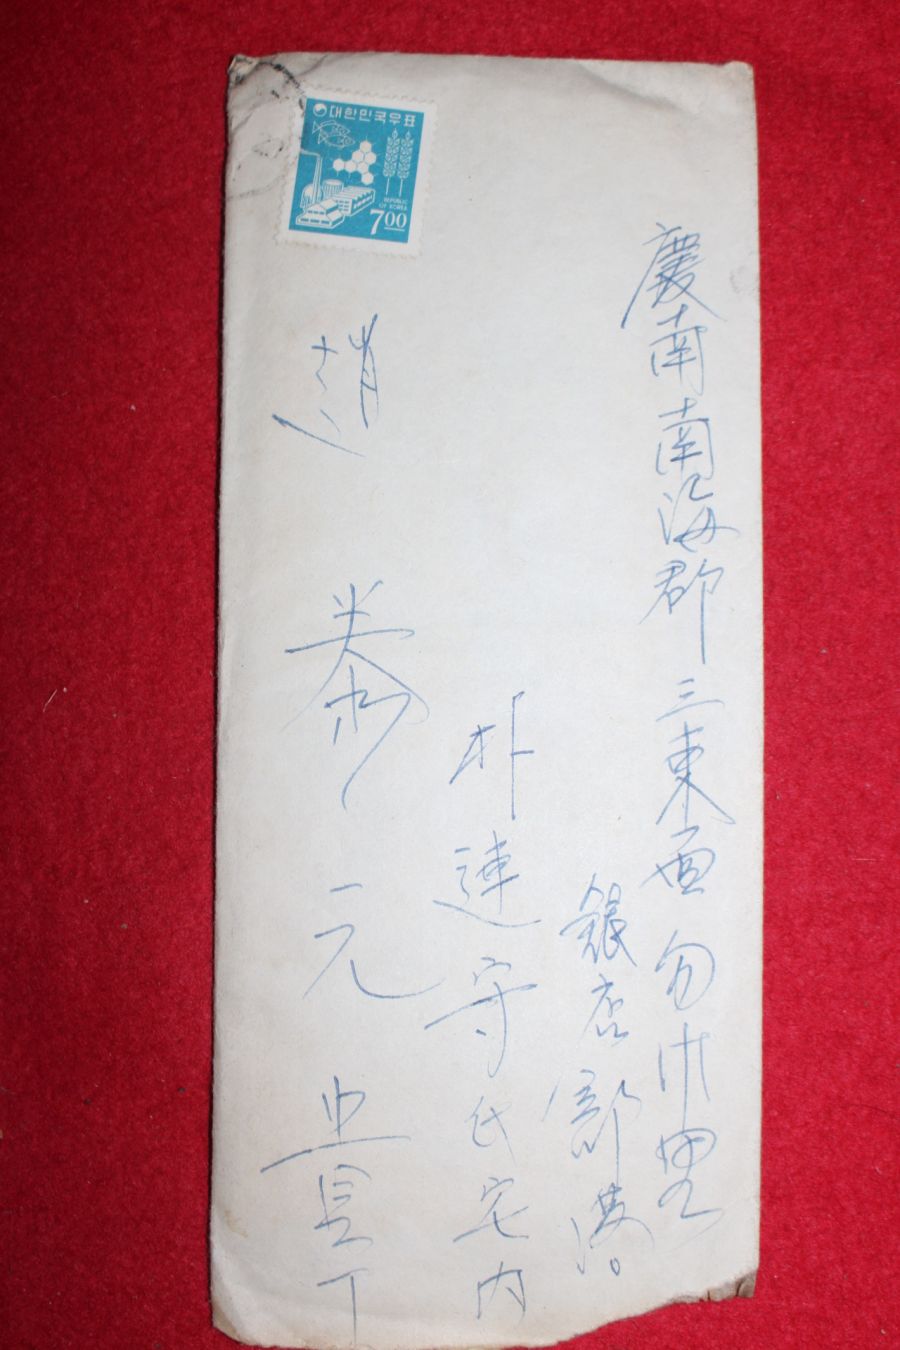 대한민국우표
REPUBLIC
OF KOREA
700
慶南南海郡三東面勿巾里
銀店部落
朴連守氏宅内
趙泰元貴下